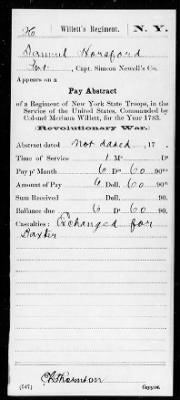 H Willett's Regiment. N. Y.
Samuel Horsford
Pvt., Capt. Simeon Newell's Co.
Appears on a
Pay Abstract
of a Regiment of New York State Troops, in the
Service of the United States, Commanded by
Colonel Marinus Willett, for the Year 1783.
(Revolutionary War.)
Abstract dated not dated, 17 .
Time of Service 1 Mo Ds
Pay p'r Month 6 Ds 60 90ths
Amount of Pay 6 Doll. 60 90ths
Sum Received Doll. 90.
Ballance due 6 Ds 60 90.
Casualties: Exchanged for
Baxter
Thomson
(547) Copyist.